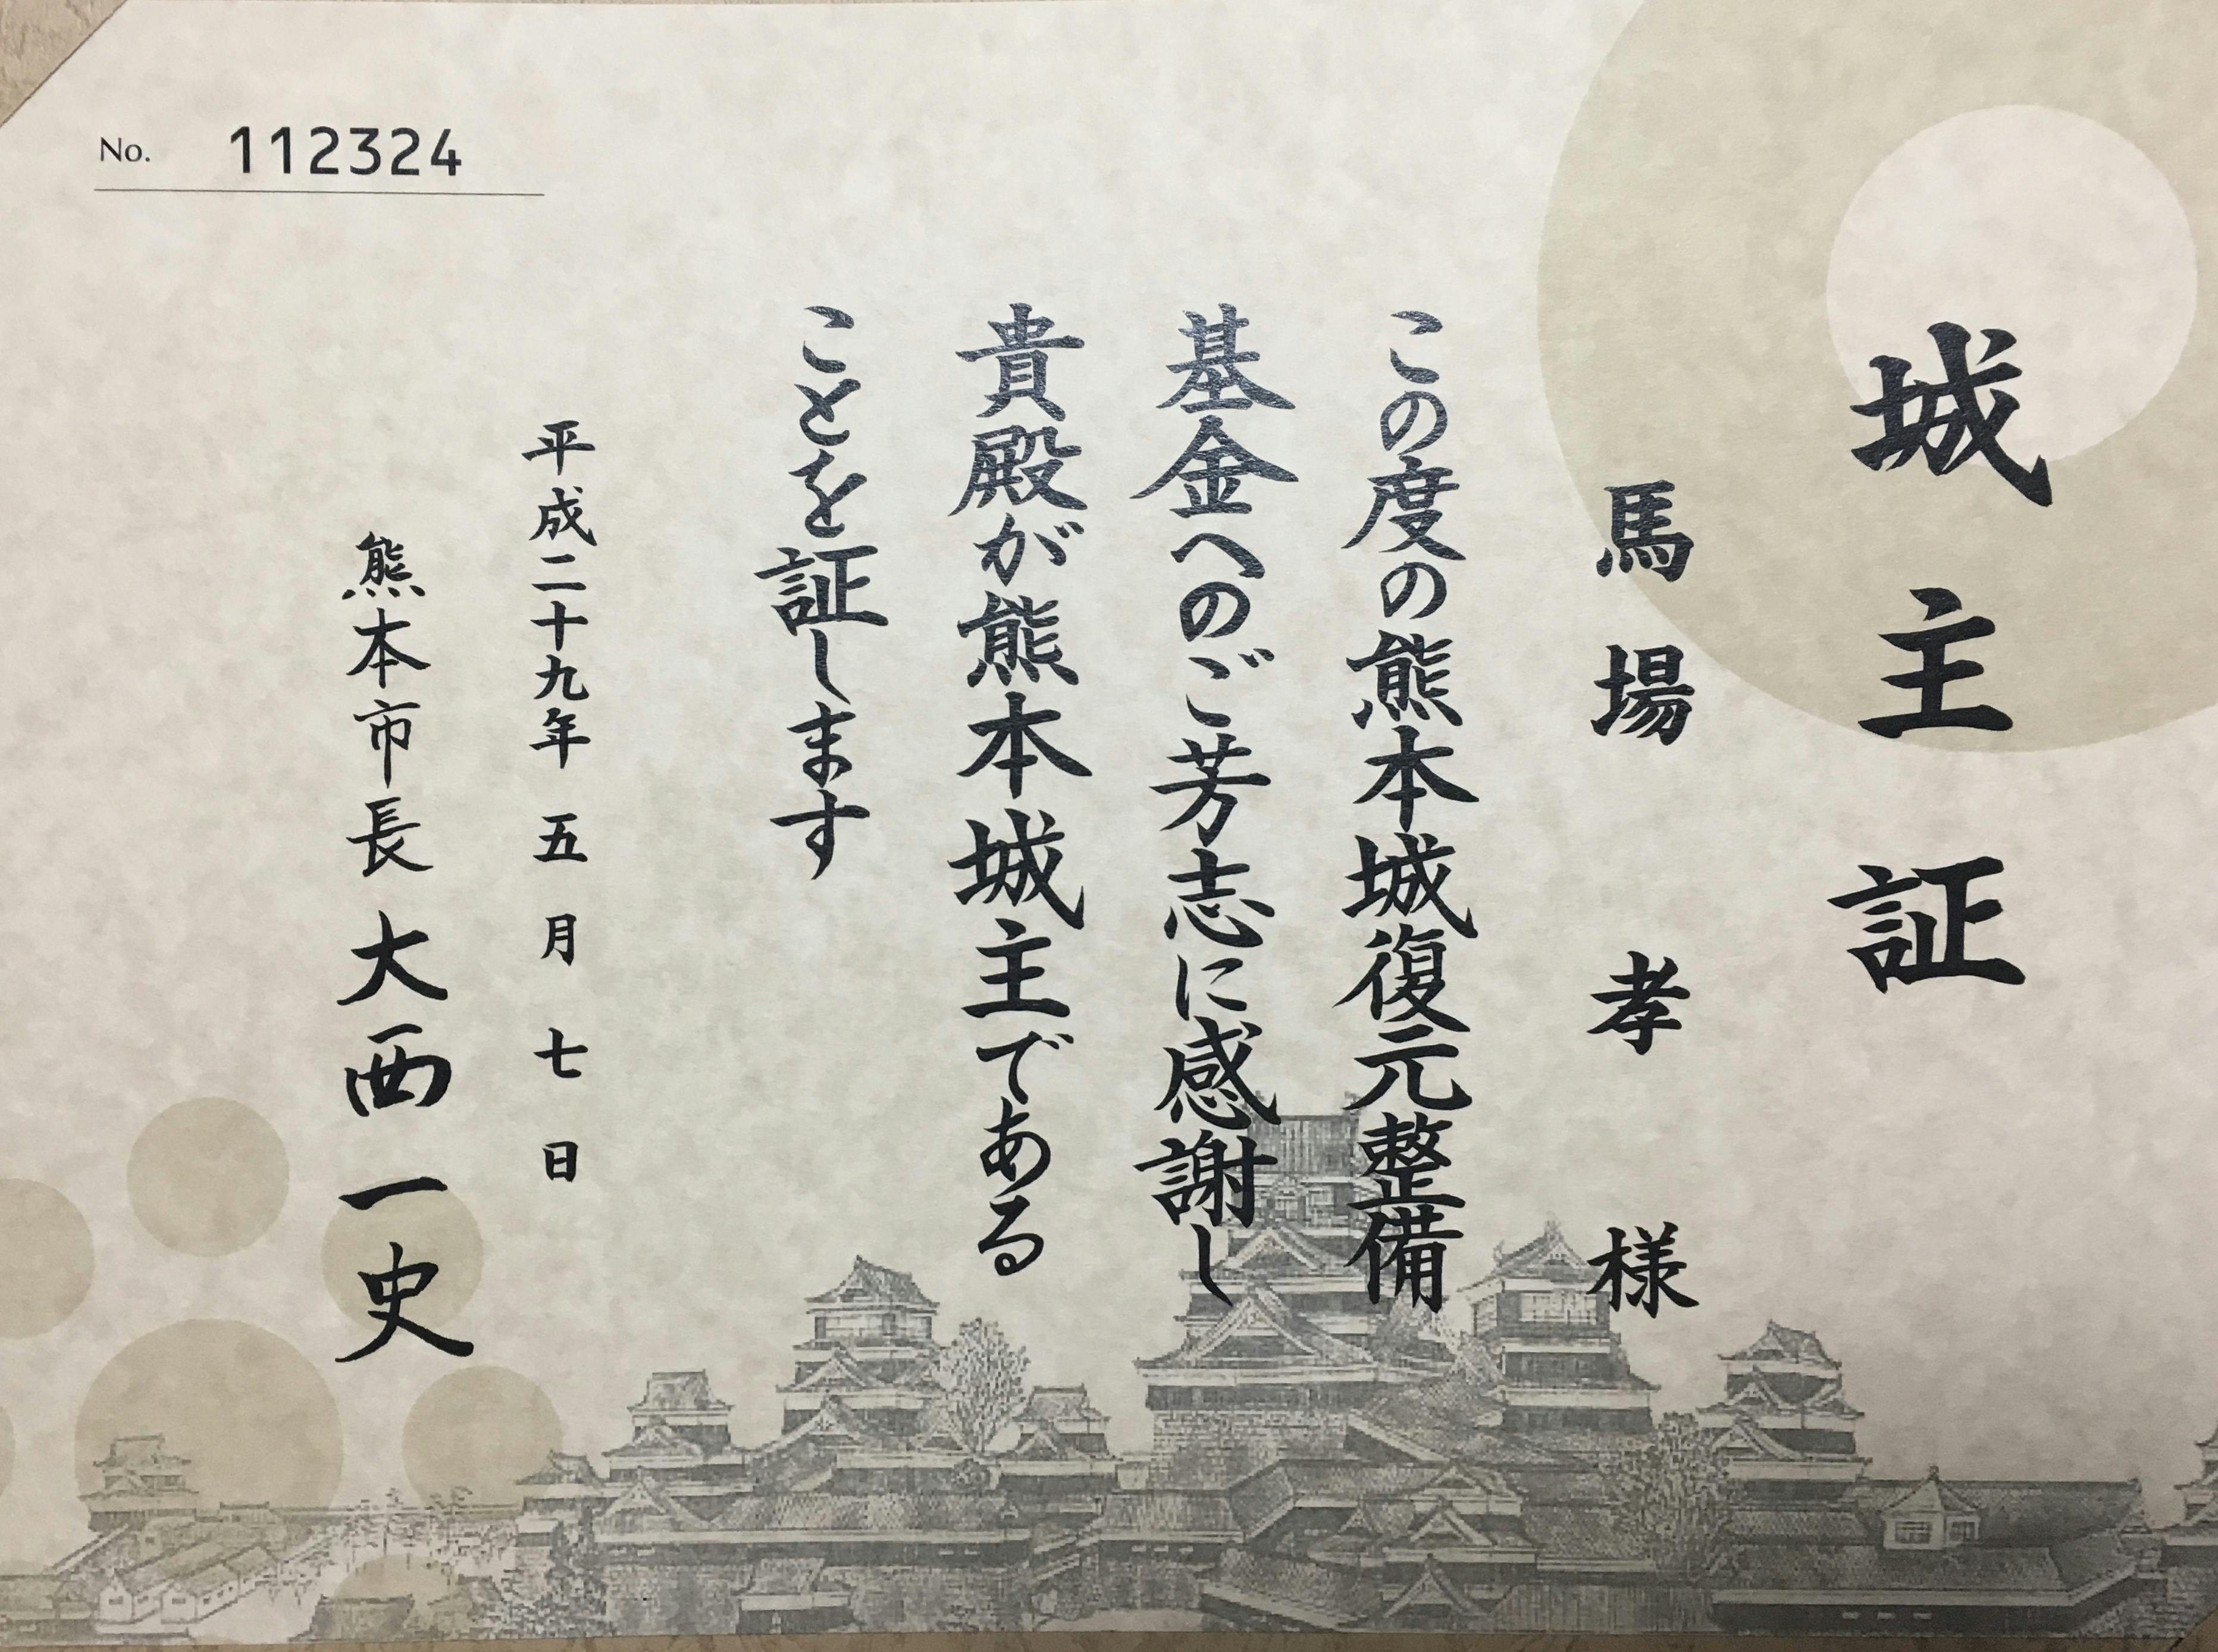 城主証
馬場 孝 様
この度の熊本城復元整備
基金へのご芳志に感謝し
貴殿が熊本城主である
ことを証します
平成二十九年 五月 七日
熊本市長 大西一史
No. 112324